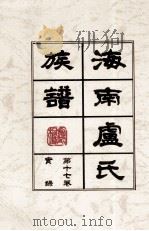 海南盧氏
族譜
第十七卷
實錄